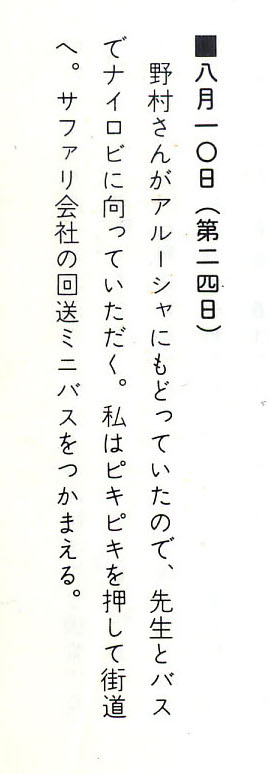 ■八月一〇日（第二四日）
　野村さんがアルーシャにもどっていたので、先生とバス
でナイロビに向っていただく。私はピキピキを押して街道
へ。サファリ会社の回送ミニバスをつかまえる。